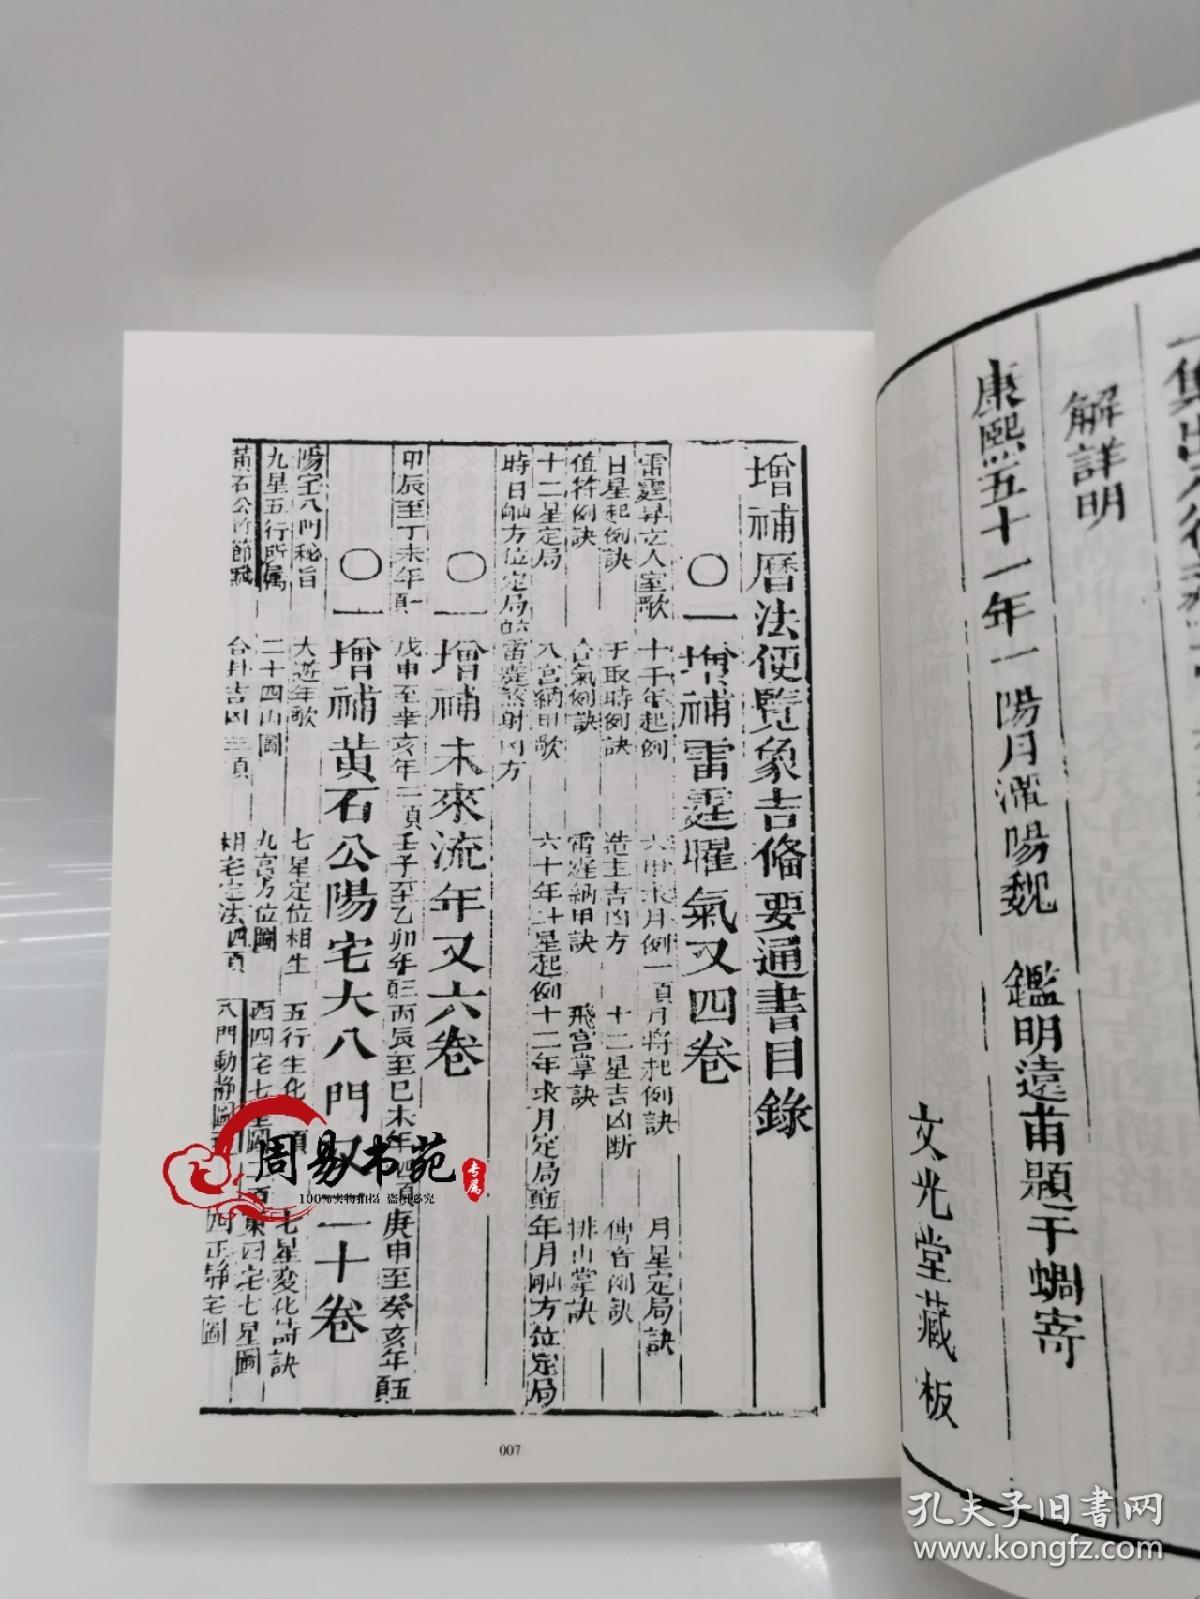 一集
解詳明
康熙五十一年一陽月潭陽魏 鑑明遠甫題于蝸寄
文光堂藏板
增補曆法便覽象吉備要通書目錄
○一增補雷霆曜氣又四卷
雷霆昇玄入室歌 十干年起例 月將起例訣 月星定局訣
日星起例訣 于取時例訣 造主吉凶方 十二星吉凶断
值符例訣 合氣例訣 雷霆納甲訣 飛宮掌訣 排山掌訣
十二星定局 八宮納甲歌 六十年 星起例 十二年求月定局 年月 方位定局
時日 方位定局 雷霆煞射凶方
○一增補未來流年又六卷
甲辰至丁未年 戊申至辛亥年二項 壬子至乙卯年 丙辰至己未年四項 庚申至癸亥年五項
○一增補黃石公陽宅大八門又一十卷
陽宅八門秘旨 大遊年歌 七星定位相生 五行生化 項 七星変化詩訣
九星五行所屬 二十四山圖 九宮方位圖 西四宅七星圖 東四宅七星圖
黃石公竹節賦 合卦吉凶三項 相宅定法四項 八門動静圖 四正静宅圖
007
周易书苑
专属
100%实物拍摄 盗图必究
孔夫子旧书网
www.kongfz.com